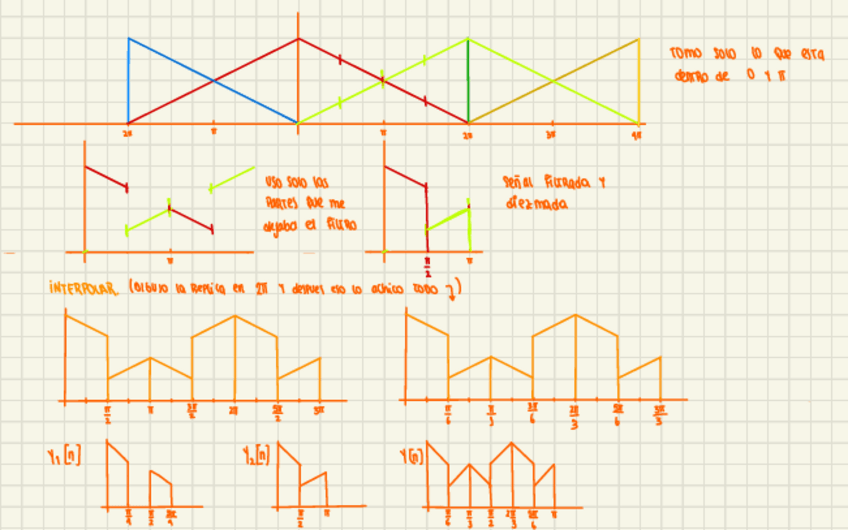 TOMO SOLO LO QUE ESTA
DENTRO DE 0 Y π
2π π π 2π 3π 4π
USO SOLO LAS
PARTES QUE ME
DEJABA EL FILTRO
π
SEÑAL FILTRADA Y
DIEZMADA
π/2 π
INTERPOLAR (DIBUJO LA REPLICA EN 2π Y DESPUES ESO LO ACHICO TODO ↴)
π/2 π 3π/2 2π 5π/2 3π
π/6 π/3 3π/6 2π/3 5π/6 3π/3
Y₁[n]
π/4 π/2 3π/4
Y₂[n]
π/2 π
Y[n]
π/6 π/3 π/2 2π/3 5π/6 π